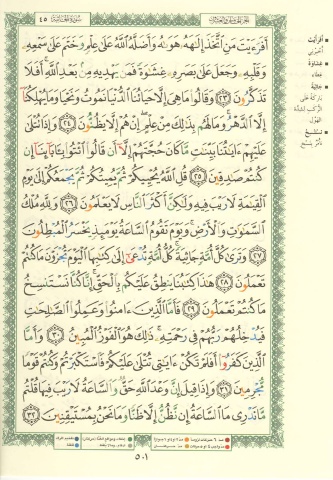 الجزء الخامس والعشرون
سورة الجاثية ٤٥
أَفَرَءَيْتَ مَنِ ٱتَّخَذَ إِلَٰهَهُۥ هَوَىٰهُ وَأَضَلَّهُ ٱللَّهُ عَلَىٰ عِلْمٍ وَخَتَمَ عَلَىٰ سَمْعِهِۦ
وَقَلْبِهِۦ وَجَعَلَ عَلَىٰ بَصَرِهِۦ غِشَٰوَةً فَمَن يَهْدِيهِ مِنۢ بَعْدِ ٱللَّهِ أَفَلَا
تَذَكَّرُونَ ٢٣ وَقَالُوا۟ مَا هِىَ إِلَّا حَيَاتُنَا ٱلدُّنْيَا نَمُوتُ وَنَحْيَا وَمَا يُهْلِكُنَآ
إِلَّا ٱلدَّهْرُ وَمَا لَهُم بِذَٰلِكَ مِنْ عِلْمٍ إِنْ هُمْ إِلَّا يَظُنُّونَ ٢٤ وَإِذَا تُتْلَىٰ
عَلَيْهِمْ ءَايَٰتُنَا بَيِّنَٰتٍ مَّا كَانَ حُجَّتَهُمْ إِلَّآ أَن قَالُوا۟ ٱئْتُوا۟ بِـَٔابَآئِنَآ إِن
كُنتُمْ صَٰدِقِينَ ٢٥ قُلِ ٱللَّهُ يُحْيِيكُمْ ثُمَّ يُمِيتُكُمْ ثُمَّ يَجْمَعُكُمْ إِلَىٰ يَوْمِ
ٱلْقِيَٰمَةِ لَا رَيْبَ فِيهِ وَلَٰكِنَّ أَكْثَرَ ٱلنَّاسِ لَا يَعْلَمُونَ ٢٦ وَلِلَّهِ مُلْكُ
ٱلسَّمَٰوَٰتِ وَٱلْأَرْضِ وَيَوْمَ تَقُومُ ٱلسَّاعَةُ يَوْمَئِذٍ يَخْسَرُ ٱلْمُبْطِلُونَ
٢٧ وَتَرَىٰ كُلَّ أُمَّةٍ جَاثِيَةً كُلُّ أُمَّةٍ تُدْعَىٰٓ إِلَىٰ كِتَٰبِهَا ٱلْيَوْمَ تُجْزَوْنَ مَا كُنتُمْ
تَعْمَلُونَ ٢٨ هَٰذَا كِتَٰبُنَا يَنطِقُ عَلَيْكُم بِٱلْحَقِّ إِنَّا كُنَّا نَسْتَنسِخُ
مَا كُنتُمْ تَعْمَلُونَ ٢٩ فَأَمَّا ٱلَّذِينَ ءَامَنُوا۟ وَعَمِلُوا۟ ٱلصَّٰلِحَٰتِ
فَيُدْخِلُهُمْ رَبُّهُمْ فِى رَحْمَتِهِۦ ذَٰلِكَ هُوَ ٱلْفَوْزُ ٱلْمُبِينُ ٣٠ وَأَمَّا
ٱلَّذِينَ كَفَرُوٓا۟ أَفَلَمْ تَكُنْ ءَايَٰتِى تُتْلَىٰ عَلَيْكُمْ فَٱسْتَكْبَرْتُمْ وَكُنتُمْ قَوْمًا
مُّجْرِمِينَ ٣١ وَإِذَا قِيلَ إِنَّ وَعْدَ ٱللَّهِ حَقٌّ وَٱلسَّاعَةُ لَا رَيْبَ فِيهَا قُلْتُم
مَّا نَدْرِى مَا ٱلسَّاعَةُ إِن نَّظُنُّ إِلَّا ظَنًّا وَمَا نَحْنُ بِمُسْتَيْقِنِينَ ٣٢
أفرأيت
أخبرني
غشاوة
غطاء
جاثية
باركة على
الركب لشدة
الهول
نستنسخ
نأمر بنسخ
٥٠١